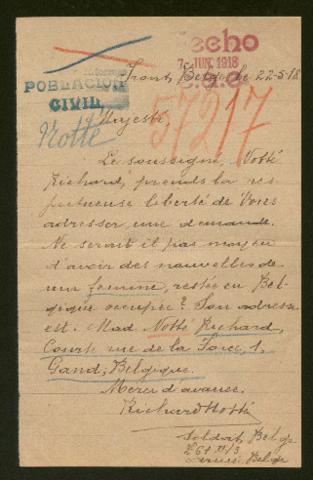 echo
7 JUN. 1918
Front, Belge le 22-5-18
POBLACION
CIVIL
Notté
57217
Majesté,
Le soussigné, Notté
Richard, prends la res-
pectueuse liberté de Vous
adresser une demande.
Ne serait il pas moyen
d'avoir des nouvelles de
ma femme, restée en Bel-
gique occupée? Son adresse
est: Mad. Notté Richard,
Courte rue de la 1.
Gand, Belgique.
Merci d'avance.
Richard Notté
Soldat, Belge
Z 61 II/3
Armée Belge